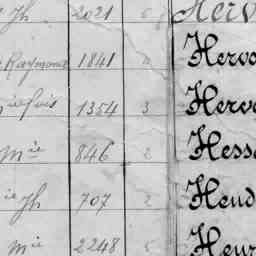 Jh 2021 6 Herv
Raymond 1841 Hervo
1354 3 Herv
Mie 846 2 Hess
ie Jh 707 2 Heud
Mie 2248 5 Heur